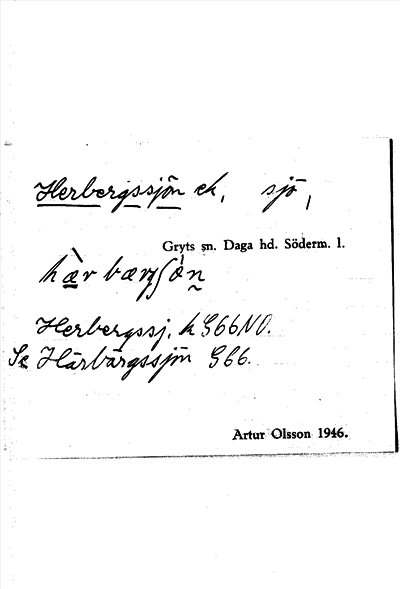 Herbergssjön ek, sjö,
Gryts sn. Daga hd. Söderm. l.
Herbergssj. k G66NO.
Se Härbärgssjön G66.
Artur Olsson 1946.